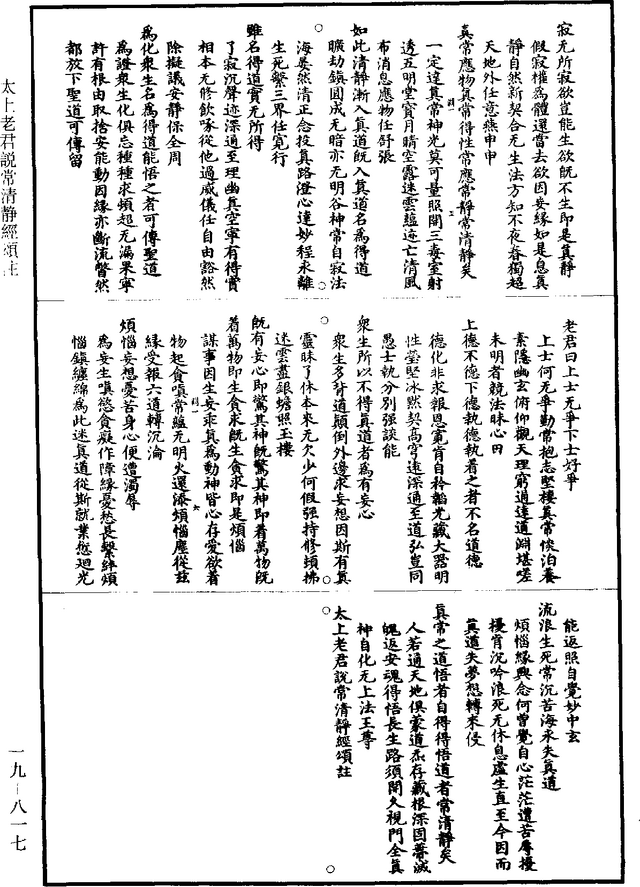 寂无所寂欲豈能生欲既不生即是真靜
假寂權為體還當去欲因妄緣如是息真
靜自然新契合无生法方知不夜春獨超
天地外任意燕申申
真常應物真常得性常應常靜常清靜矣
一定達真常神光莫可量照開三毒室射
透五明堂寶月晴空露迷雲蘊迹亡清風
布消息應物任舒張
如此清靜漸入真道既入真道名為得道
曠劫鎮圓成无暗亦无明谷神常自寂法
海晏然清正念投真路澄心達妙程永離
生死繫三界任寛行
雖名得道實无所得
了寂沉聲迹深通至理幽真空寧有得實
相本无修飲啄從他過威儀任自由豁然
除擬議安靜保全周
為化衆生名為得道能悟之者可傳聖道
為證衆生化俱忘種種求頓超无漏果寧
許有根由取捨安能動因緣亦斷流瞥然
都放下聖道可傳留
老君曰上士无爭下士好爭
上士何无爭勤常抱志堅棲真常惔泊養
素隱幽玄俯仰觀天理窮通達道淵堪嗟
未明者競法昧心田
上德不德下德執德執着之者不名道德
德化非求報恩寛肯自矜韜光藏大器明
性瑩堅冰默契高穹遠深通至道弘豈同
愚士執分別强談能
衆生所以不得真道者為有妄心
衆生多背道顛倒外邊求妄想因斯有真
靈昧了休本來无欠少何假强持修頓拂
迷雲盡銀蟾照玉樓
既有妄心即驚其神既驚其神即着萬物既
着萬物即生貪求既生貪求即是煩惱
謀事因生妄乖真為動神皆心存愛欲着
物起貪嗔常蘊无明火還添煩惱塵從兹
緣受報六道轉沉淪
煩惱妄想憂苦身心便遭濁辱
為妄生嗔慾貪癡作障緣憂愁長繫絆煩
惱鎮纏綿為此迷真道從斯就業愆迴光
能返照自覺妙中玄
流浪生死常沉苦海永失真道
煩惱緣興念何曾覺自心茫茫遭苦辱擾
擾肯沉吟浪死无休息虛生直至今因而
真道失夢想轉來侵
真常之道悟者自得得悟道者常清靜矣
人若通天地俱蒙道炁存藏根深固蔕滅
魄返安魂得悟長生路須開久視門全真
神自化无上法王尊
太上老君說常清靜經頌註
太上老君説常清靜經頌註
一九-八一七